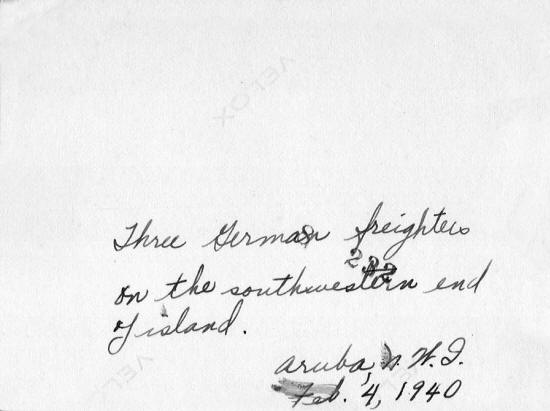 VELOX
Three German freighters
232
on the southwestern end
of island.
Aruba, N.W.I.
Feb. 4, 1940
VEL
VELOX